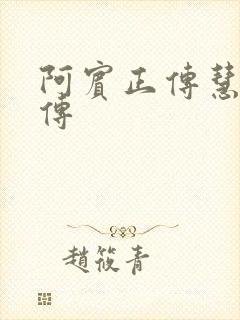 阿賓正傳慧
傳
趙筱青